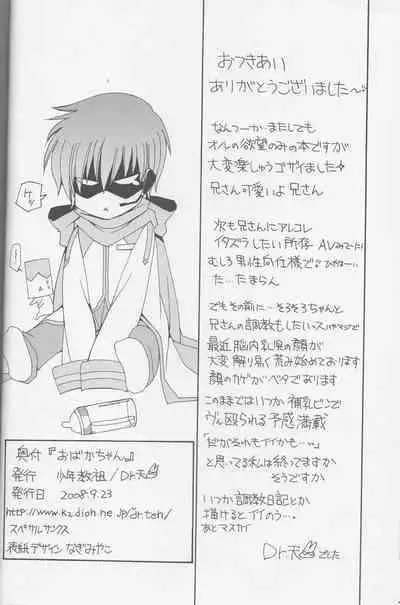 おつきあい
ありがとうございました〜
なんつーか…またしても
オレの欲望のみの本ですが
大変楽しゅうゴザイました
兄さん可愛いよ兄さん
次も兄さんにアレコレ
イタズラしたい所存
むしろ男性向仕様で
た…たまらん
でもその前に…そろそろちゃんと
兄さんの調教もしたい
最近脳内
大変解り易く荒み始めております
このままではいつか哺乳ビンで
殴られる予感満載
「だがそれもイイかも…」
と思ってる私は終ってますか
そうですか
いつか調教日記とか
描けるとイイのう…。
Dr.天 でした
奥付『おばかちゃん』
発行 少年教祖/Dr.天
発行日 2008.9.23
http://www.k2.dion.ne.jp/~dr.ten/
スペサルサンクス
表紙デザイン なぎみやこ